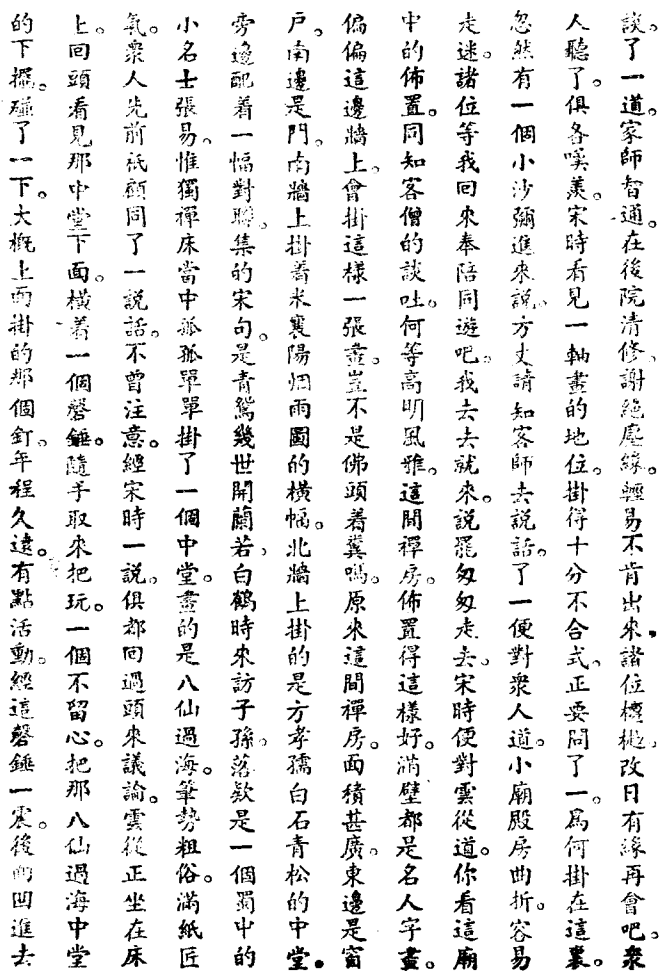 說。了一道。家師智通。在後院清修。謝絕塵緣。輕易不肯出來。諸位檀樾。改日有緣再會吧。衆
人聽了。俱各嘆羨。宋時看見一軸畫的地位。掛得十分不合式。正要問了一。爲何掛在這裏。
忽然有一個小沙彌進來說。方丈請知客師去說話。了一便對衆人道。小廟殿房曲折。容易
走迷。諸位等我回來奉陪同遊吧。我去去就來。說罷匆匆走去。宋時便對雲從道。你看這廟
中的佈置。同知客僧的談吐。何等高明風雅。這間禪房。佈置得這樣好。滿壁都是名人字畫。
偏偏這邊牆上。會掛這樣一張畫。豈不是佛頭着糞嗎。原來這間禪房。面積甚廣。東邊是窗
戶。南邊是門。南牆上掛着米襄陽烟雨圖的橫幅。北牆上掛的是方孝孺白石青松的中堂。
旁邊配着一幅對聯。集的宋句。是青鴛幾世開蘭若。白鶴時來訪子孫。落欵是一個蜀中的
小名士張易。惟獨禪床當中孤孤單單掛了一個中堂。畫的是八仙過海。筆勢粗俗。滿紙匠
氣。衆人先前祇顧同了一說話。不曾注意。經宋時一說。俱都回過頭來議論。雲從正坐在床
上。回頭看見那中堂下面。橫着一個磬錘。隨手取來把玩。一個不留心。把那八仙過海中堂
的下擺。碰了一下。大概上面掛的那個釘。年程久遠。有點活動。經這磬錘一震。後面凹進去